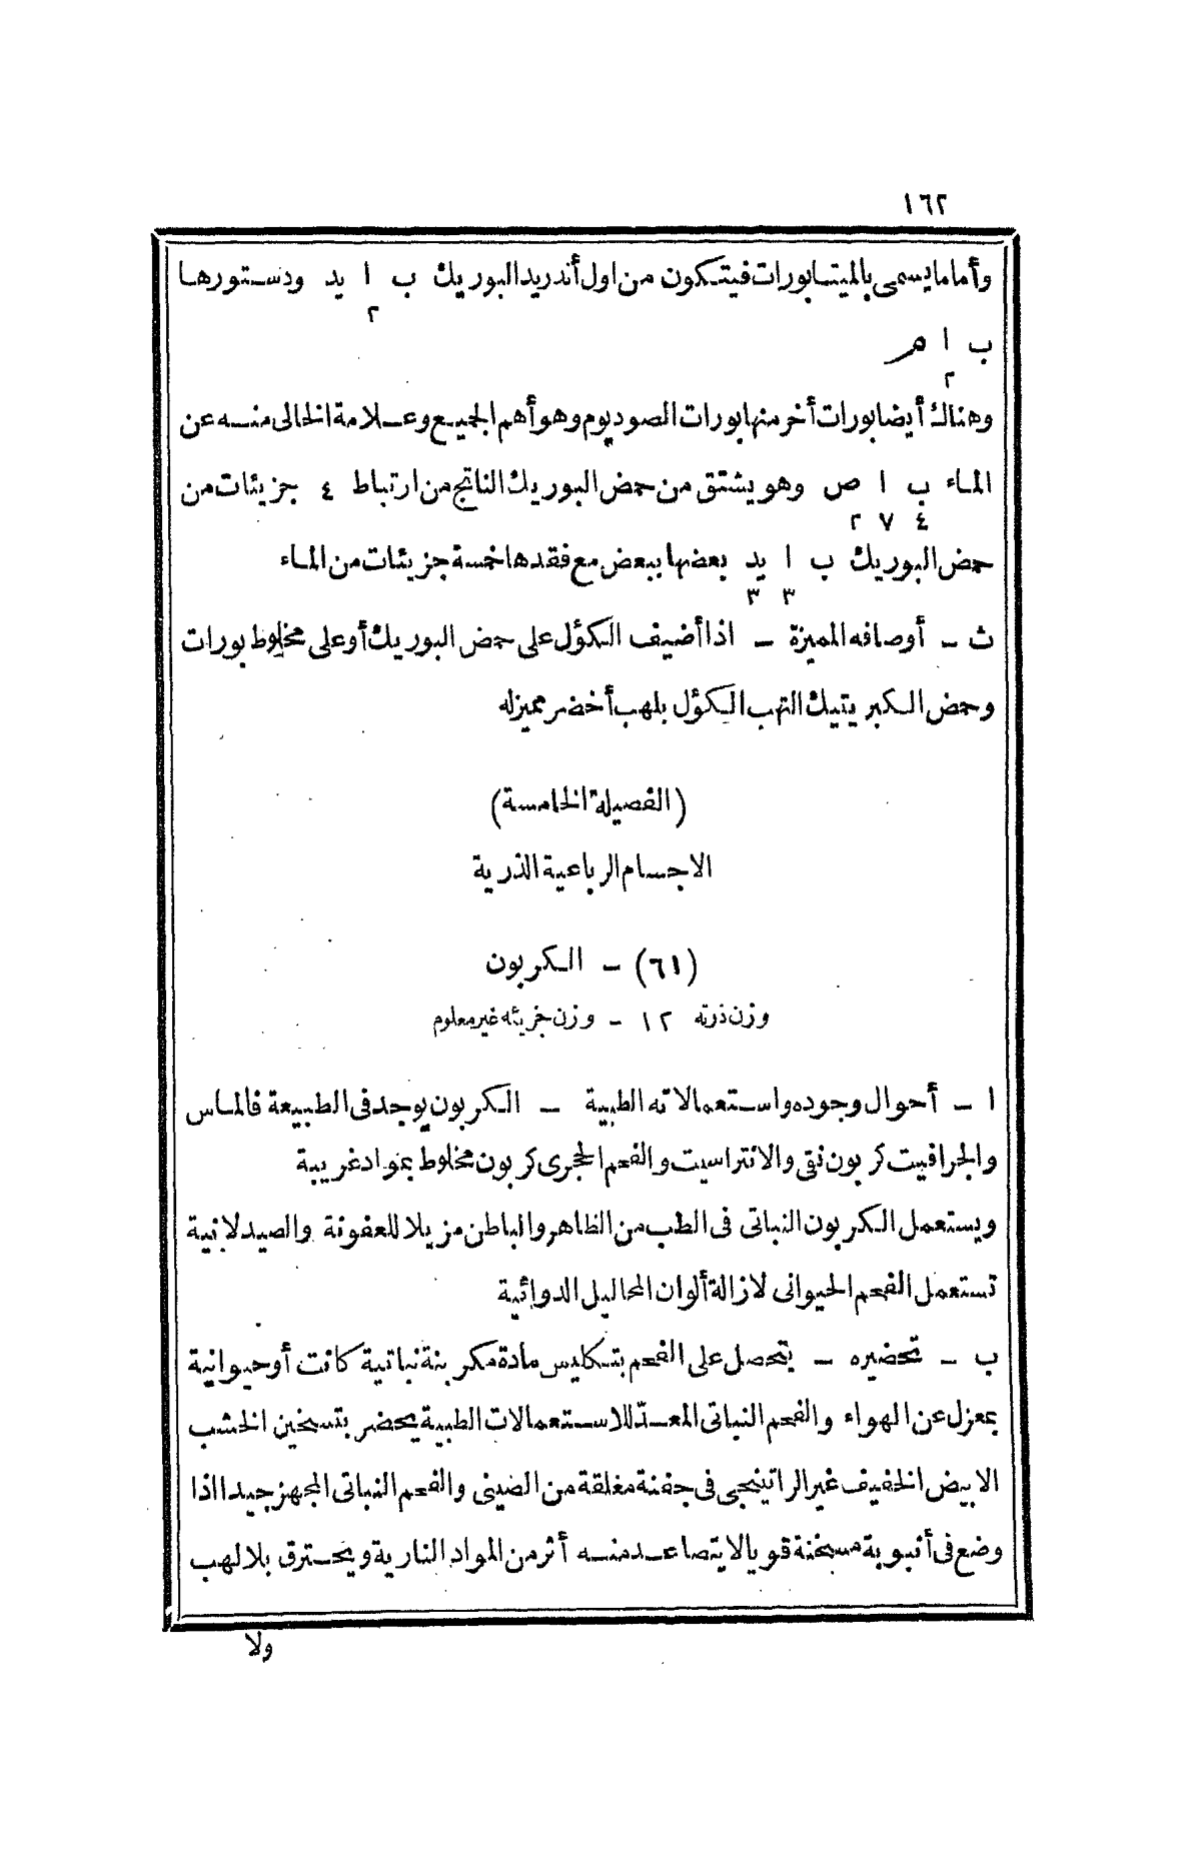 ١٦٢
وأما ما يسمى بالميتابورات فيتكون من اول أندريد البوريك ب ا يد ودستورها
٢
ب ا م
٢
وهناك أيضا بورات أخر منها بورات الصوديوم وهو أهم الجميع وعلامة الخالى منه عن
الماء ب ا ص وهو يشتق من حمض البوريك الناتج من ارتباط ٤ جزيئات من
٤ ٧ ٢
حمض البوريك ب ا يد بعضها ببعض مع فقدها خمسة جزيئات من الماء
٣ ٣
ث ـ أوصافه المميزة ـ اذا أضيف الكؤل على حمض البوريك أو على مخلوط بورات
وحمض الكبريتيك التهب الكؤل بلهب أخضر مميز له
(الفصيلة الخامسة)
الاجسام الرباعية الذرية
(٦١) ـ الكربون
وزن ذرته ١٢ ـ وزن جزيئه غير معلوم
ا ـ أحوال وجوده واستعمالاته الطبية ـ الكربون يوجد فى الطبيعة فالماس
والجرافيت كربون نقى والانتراسيت والفحم الحجرى كربون مخلوط بمواد غريبة
ويستعمل الكربون النباتى فى الطب من الظاهر والباطن مزيلا للعفونة والصيدلانية
تستعمل الفحم الحيوانى لازالة ألوان المحاليل الدوائية
ب ـ تحضيره ـ يتحصل على الفحم بتكليس مادة مكربنة نباتية كانت أو حيوانية
بمعزل عن الهواء والفحم النباتى المعدّ للاستعمالات الطبية يحضر بتسخين الخشب
الابيض الخفيف غير الراتينجى فى جفنة مغلقة من الصينى والفحم النباتى المجهز جيدا اذا
وضع فى أنبوبة مسخنة قويا لا يتصاعد منه أثر من المواد النارية ويحترق بلا لهب
ولا